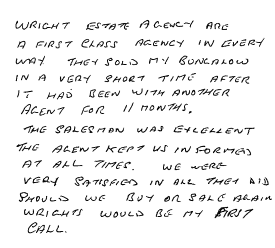 WRIGHT ESTATE AGENCY ARE
A FIRST CLASS AGENCY IN EVERY
WAY THEY SOLD MY BUNGALOW
IN A VERY SHORT TIME AFTER
IT HAD BEEN WITH ANOTHER
AGENT FOR 11 MONTHS.
THE SALESMAN WAS EXELLENT
THE AGENT KEPT US INFORMED
AT ALL TIMES. WE WERE
VERY SATISFIED IN ALL THEY DID
SHOULD WE BUY OR SALE AGAIN
WRIGHTS WOULD BE MY FIRST
CALL.